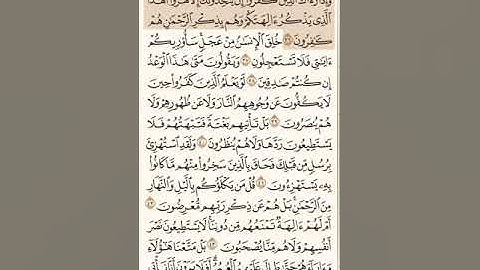 وَإِذَا رَءَاكَ ٱلَّذِينَ كَفَرُوٓا۟ إِن يَتَّخِذُونَكَ إِلَّا هُزُوًا أَهَٰذَا
ٱلَّذِى يَذْكُرُ ءَالِهَتَكُمْ وَهُم بِذِكْرِ ٱلرَّحْمَٰنِ هُمْ
كَٰفِرُونَ ٣٦ خُلِقَ ٱلْإِنسَٰنُ مِنْ عَجَلٍ سَأُو۟رِيكُمْ
ءَايَٰتِى فَلَا تَسْتَعْجِلُونِ ٣٧ وَيَقُولُونَ مَتَىٰ هَٰذَا ٱلْوَعْدُ
إِن كُنتُمْ صَٰدِقِينَ ٣٨ لَوْ يَعْلَمُ ٱلَّذِينَ كَفَرُوا۟ حِينَ
لَا يَكُفُّونَ عَن وُجُوهِهِمُ ٱلنَّارَ وَلَا عَن ظُهُورِهِمْ وَلَا
هُمْ يُنصَرُونَ ٣٩ بَلْ تَأْتِيهِم بَغْتَةً فَتَبْهَتُهُمْ فَلَا
يَسْتَطِيعُونَ رَدَّهَا وَلَا هُمْ يُنظَرُونَ ٤٠ وَلَقَدِ ٱسْتُهْزِئَ
بِرُسُلٍ مِّن قَبْلِكَ فَحَاقَ بِٱلَّذِينَ سَخِرُوا۟ مِنْهُم مَّا كَانُوا۟
بِهِۦ يَسْتَهْزِءُونَ ٤١ قُلْ مَن يَكْلَؤُكُم بِٱلَّيْلِ وَٱلنَّهَارِ
مِنَ ٱلرَّحْمَٰنِ بَلْ هُمْ عَن ذِكْرِ رَبِّهِم مُّعْرِضُونَ ٤٢
أَمْ لَهُمْ ءَالِهَةٌ تَمْنَعُهُم مِّن دُونِنَا لَا يَسْتَطِيعُونَ نَصْرَ
أَنفُسِهِمْ وَلَا هُم مِّنَّا يُصْحَبُونَ ٤٣ بَلْ مَتَّعْنَا هَٰٓؤُلَآءِ
وَءَابَآءَهُمْ حَتَّىٰ طَالَ عَلَيْهِمُ ٱلْعُمُرُ أَفَلَا يَرَوْنَ أَنَّا نَأْتِى